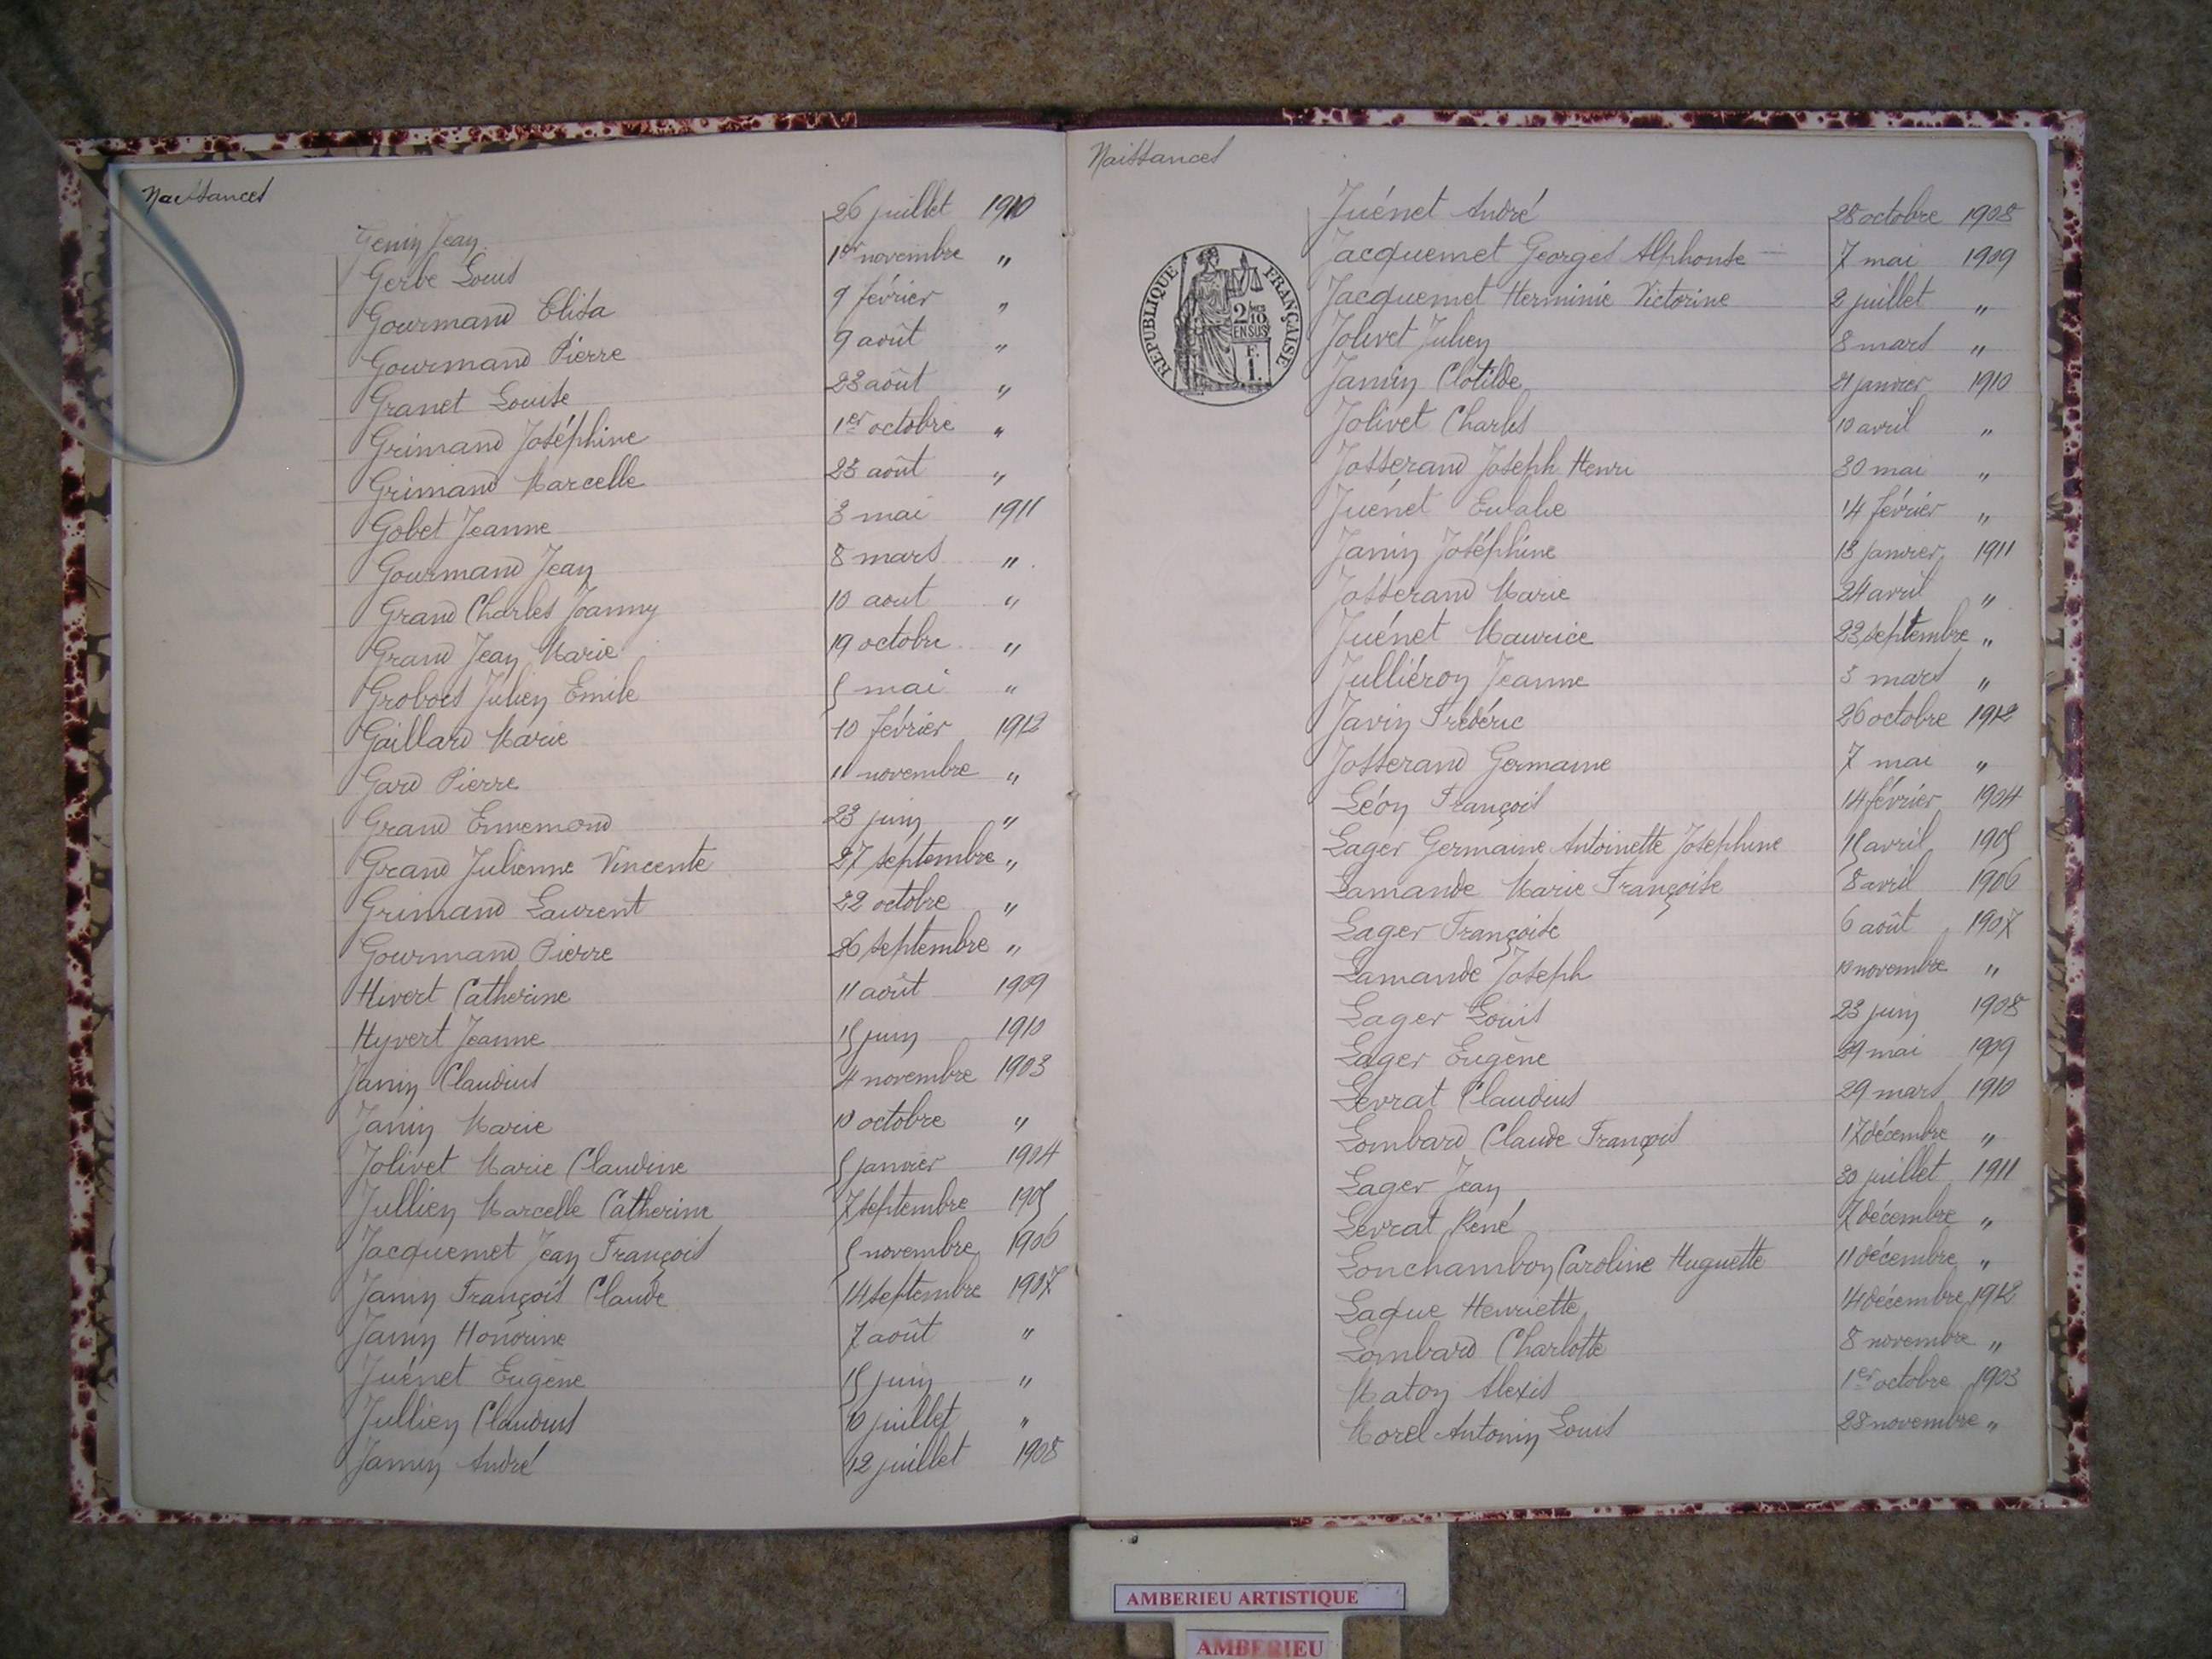 Naissances
Genin Jean 26 juillet 1910
Gerbe Louis 1er novembre "
Gourmand Elisa 9 février "
Gourmand Pierre 9 août "
Granet Louise 23 août "
Grimand Joséphine 1er octobre "
Grimand Marcelle 23 août "
Gobet Jeanne 3 mai 1911
Gourmand Jean 8 mars "
Grand Charles Joanny 10 aout "
Grand Jean Marie 19 octobre "
Grobois Julien Emile 5 mai "
Gaillard Marie 10 février 1912
Gard Pierre 11 novembre "
Grand Ennemond 23 juin "
Grand Julienne Vincente 27 septembre "
Grimand Laurent 22 octobre "
Gourmand Pierre 26 septembre "
Hivert Catherine 11 août 1909
Hyvert Jeanne 15 juin 1910
Janin Claudius 4 novembre 1903
Janin Marie 10 octobre "
Jolivet Marie Claudine 5 janvier 1904
Jullien Marcelle Catherine 7 septembre 1905
Jacquemet Jean François 5 novembre 1906
Janin François Claude 14 septembre 1907
Janin Honorine 7 août "
Juénet Eugène 15 juin "
Jullien Claudius 10 juillet "
Janin André 12 juillet 1908
Naissances
REPUBLIQUE FRANÇAISE
2/10
EN SUS
F.
1.
Juénet André 28 octobre 1908
Jacquemet Georges Alphonse 7 mai 1909
Jacquemet Herminie Victorine 2 juillet "
Jolivet Julien 8 mars "
Janin Clotilde 21 janvier 1910
Jolivet Charles 10 avril "
Josserand Joseph Henri 30 mai "
Juénet Eulalie 14 février "
Janin Joséphine 13 janvier 1911
Josserand Marie 24 avril "
Juénet Maurice 23 septembre "
Julliéron Jeanne 3 mars "
Javin Frédéric 26 octobre 1912
Josserand Germaine 7 mai "
Léon François 14 février 1904
Lager Germaine Antoinette Josephine 15 avril 1905
Lamande Marie Françoise 8 avril 1906
Lager Françoise 6 août 1907
Lamande Joseph 10 novembre "
Lager Louis 23 juin 1908
Lager Eugène 29 mai 1909
Levrat Claudius 29 mars 1910
Lombard Claude François 17 décembre "
Lager Jean 30 juillet 1911
Levrat René 7 décembre "
Lonchambon Caroline Huguette 11 décembre "
Laque Henriette 14 décembre 1912
Lombard Charlotte 8 novembre "
Maton Alexis 1er octobre 1903
Morel Antonin Louis 28 novembre "
AMBERIEU ARTISTIQUE
AMBERIEU